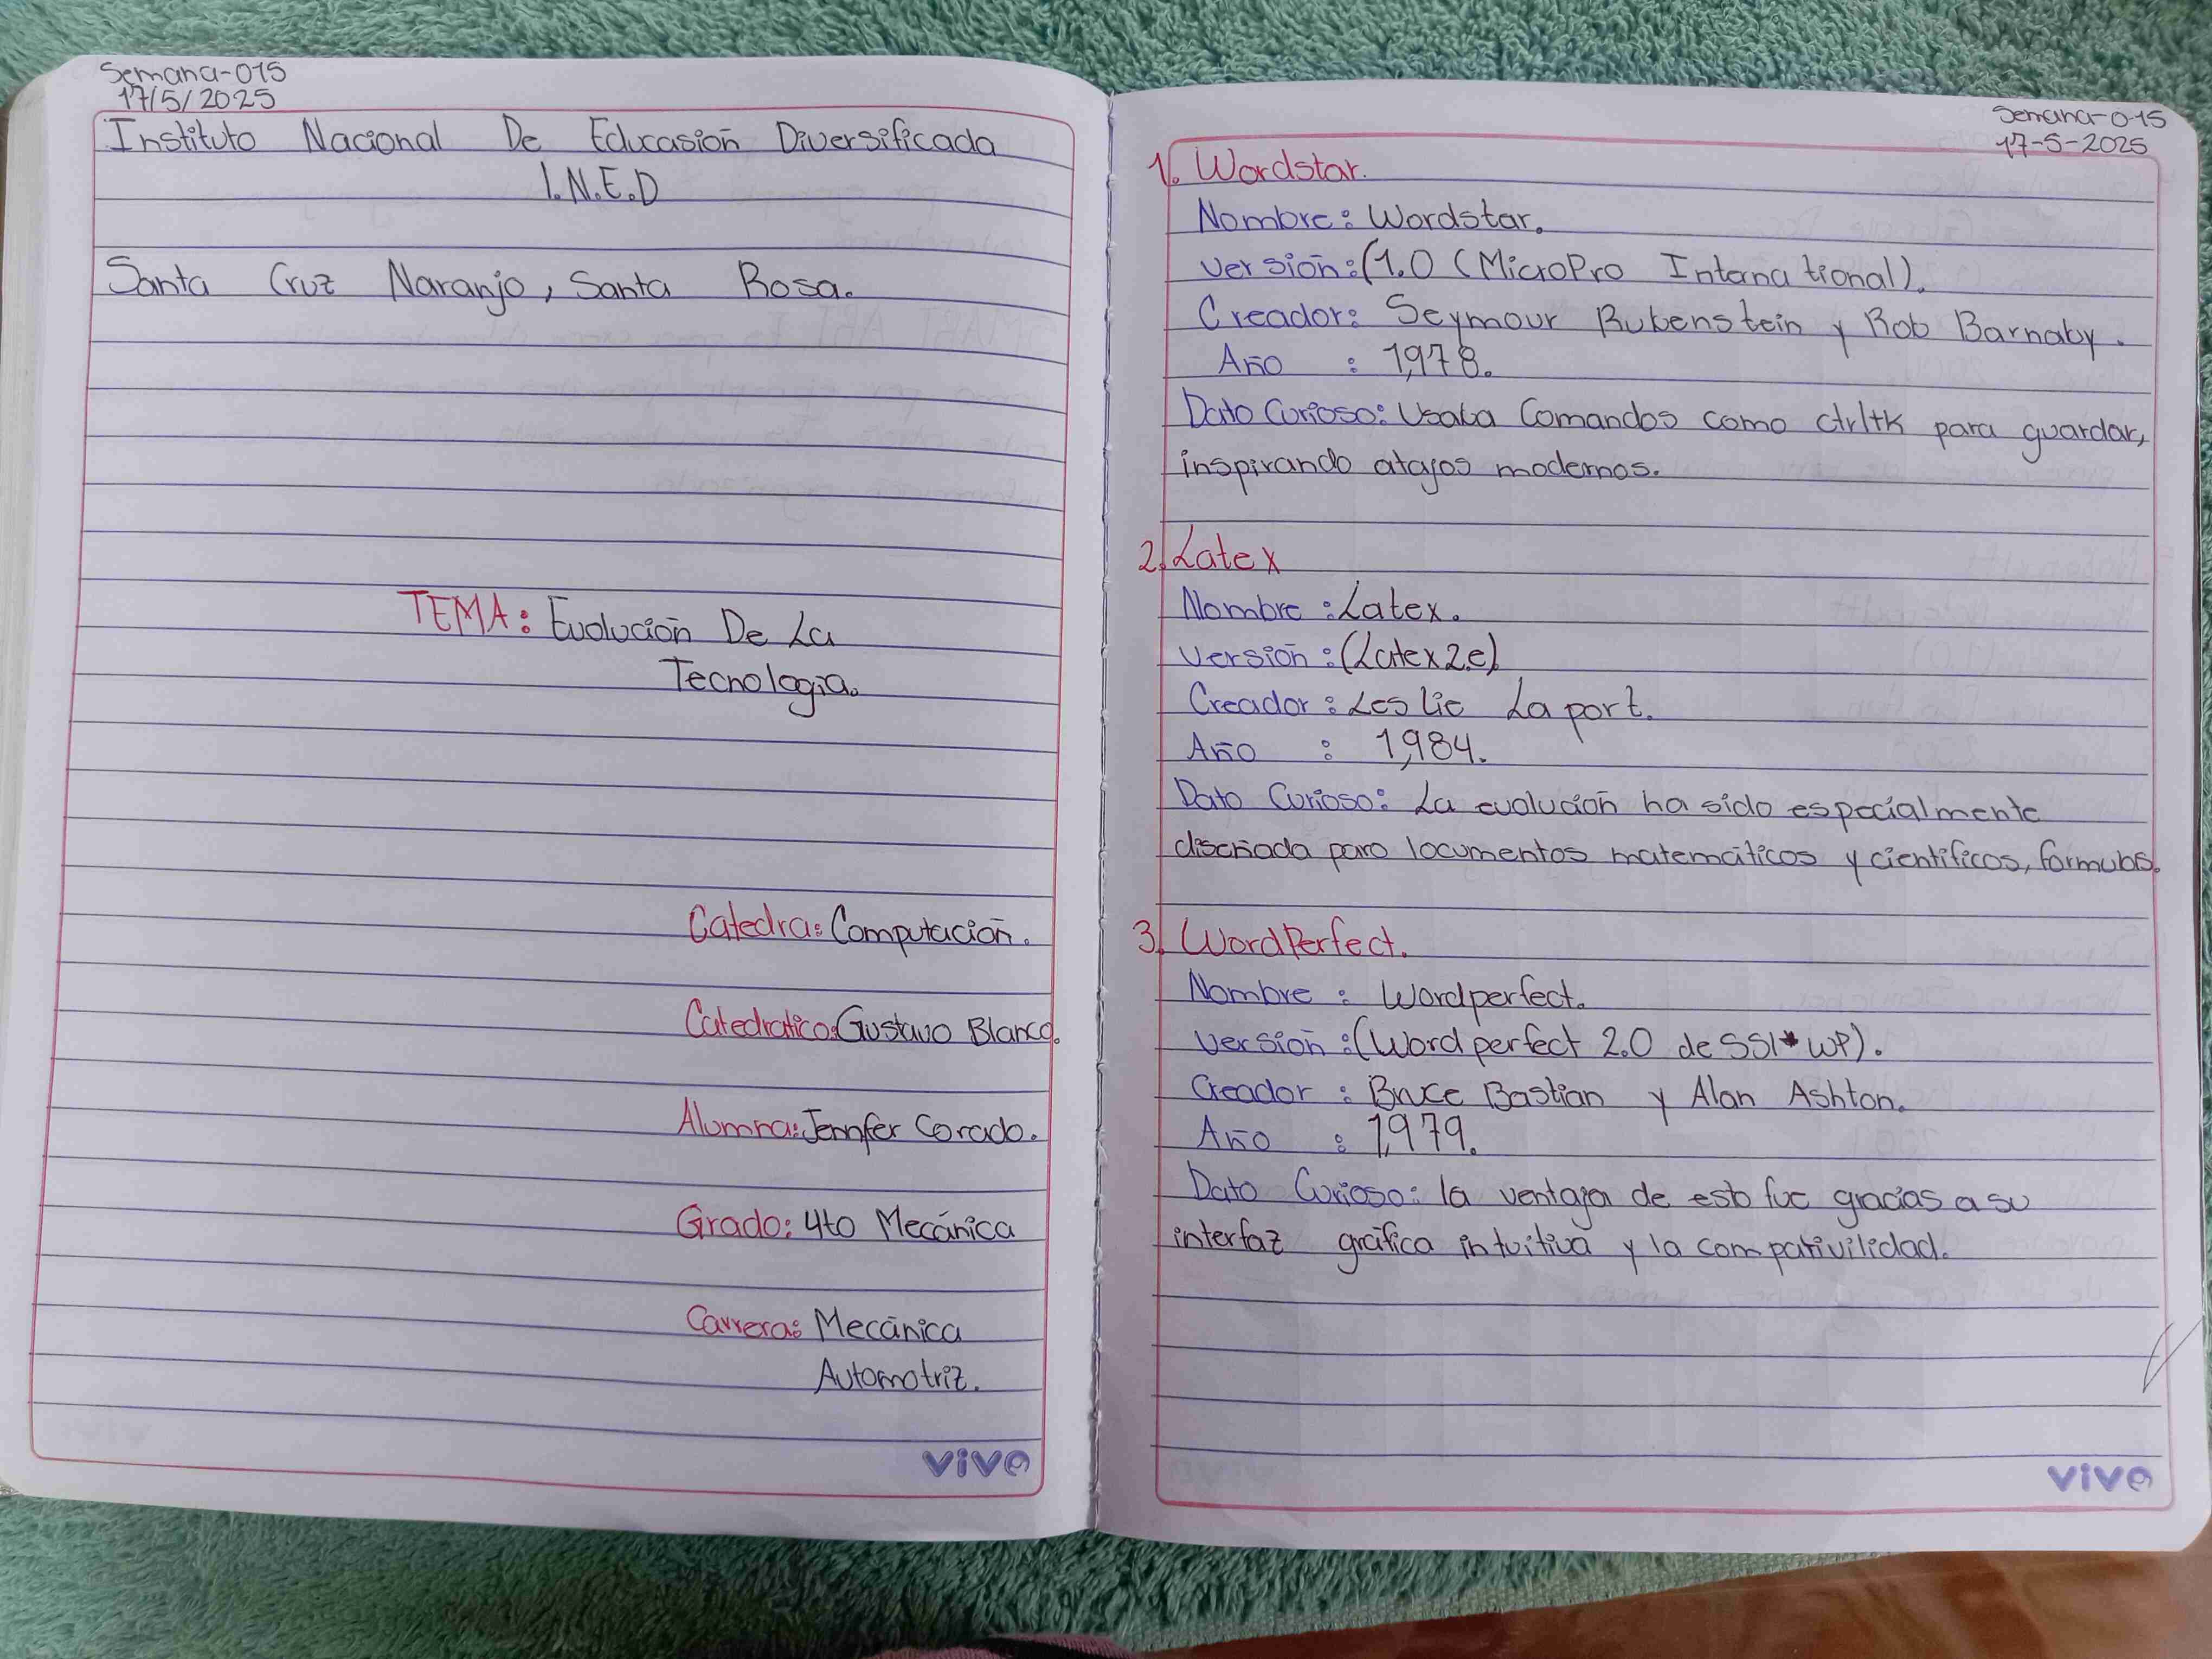 Semana-015
17/5/2025
Instituto Nacional De Educasión Diversificada
I.N.E.D
Santa Cruz Naranjo, Santa Rosa.
TEMA: Evolución De La
Tecnología.
Catedra: Computación.
Catedratico: Gustavo Blanco.
Alumna: Jennfer Corado.
Grado: 4to Mecánica
Carrera: Mecánica
Automotriz.
vivo
Semana-015
17-5-2025
1. Wordstar.
Nombre: Wordstar.
versión: (1.0 (MicroPro International).
Creador: Seymour Rubenstein y Rob Barnaby.
Año : 1,978.
Dato Curioso: Usaba Comandos como ctrl+k para guardar,
inspirando atajos modernos.
2. Latex
Nombre : Latex.
versión : (Latex2.e)
Creador : Leslie Laport.
Año : 1,984.
Dato Curioso: La evolución ha sido especialmente
diseñada para locumentos matemáticos y científicos, formulas.
3. WordPerfect.
Nombre : Wordperfect.
versión : (Wordperfect 2.0 de SSI*WP).
Creador : Bruce Bastian y Alan Ashton.
Año : 1,979.
Dato Curioso: la ventaja de esto fue gracias a su
interfaz gráfica intuitiva y la compativilidad.
vivo